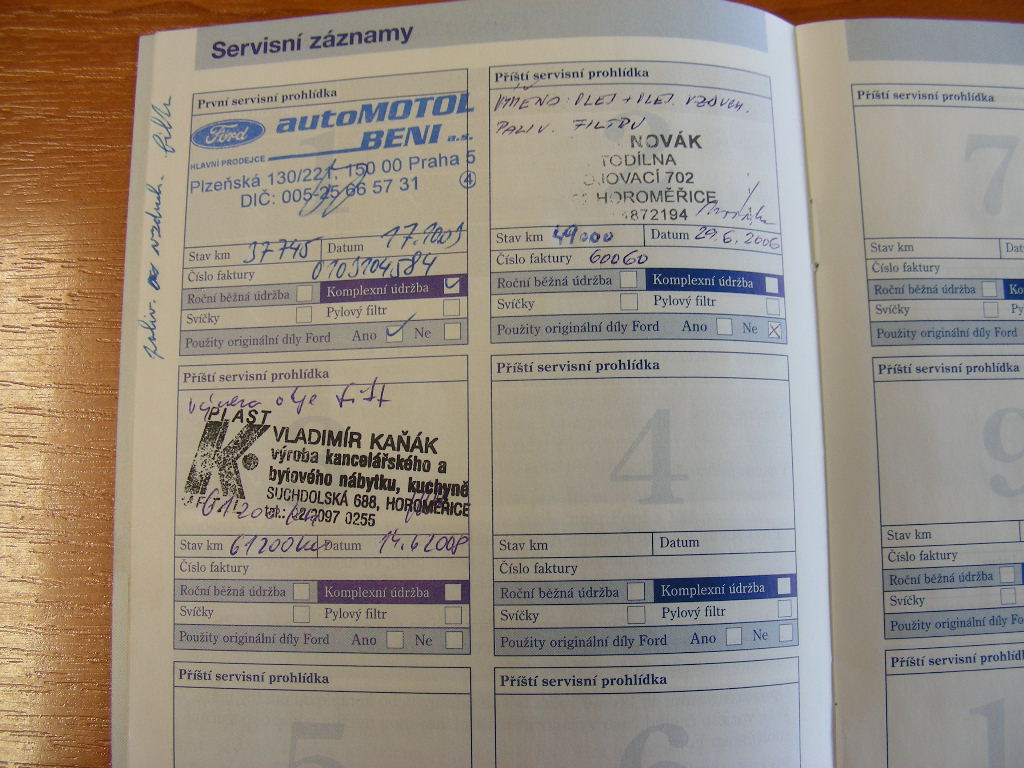 Servisní záznamy
První servisní prohlídka
Ford
autoMOTOL
BENI a.s.
HLAVNÍ PRODEJCE
Plzeňská 130/221, 150 00 Praha 5
DIČ: 005-25 66 57 31 4
Stav km 37745 Datum
Číslo faktury 0103104584
Roční běžná údržba Komplexní údržba
Svíčky Pylový filtr
Použity originální díly Ford Ano Ne
Příští servisní prohlídka
OLEJ + OLEJ. VZDUCH.
PALIV. FILTRU
NOVÁK
TODÍLNA
JOVACÍ 702
HOROMĚŘICE
4872194
Stav km 49000 Datum 29.6.2006
Číslo faktury 60060
Roční běžná údržba Komplexní údržba
Svíčky Pylový filtr
Použity originální díly Ford Ano Ne
Příští servisní prohlídka
výměna oleje filtr
PLAST
VLADIMÍR KAŇÁK
výroba kancelářského a
bytového nábytku, kuchyně
SUCHDOLSKÁ 688, HOROMĚŘICE
tel.: 02/2097 0255
61200 km
Stav km 61200 km Datum 14.6.2008
Číslo faktury
Roční běžná údržba Komplexní údržba
Svíčky Pylový filtr
Použity originální díly Ford Ano Ne
Příští servisní prohlídka
4
Stav km Datum
Číslo faktury
Roční běžná údržba Komplexní údržba
Svíčky Pylový filtr
Použity originální díly Ford Ano Ne
Příští servisní prohlídka
5
Příští servisní prohlídka
6
Příští servisní prohlídka
7
Stav km
Číslo faktury
Roční běžná údržba
Svíčky
Použity originální díly Ford
Příští servisní prohlíd
9
Stav km
Číslo faktury
Roční běžná údržba
Svíčky
Použity originální díly Ford
Příští servisní prohlíd